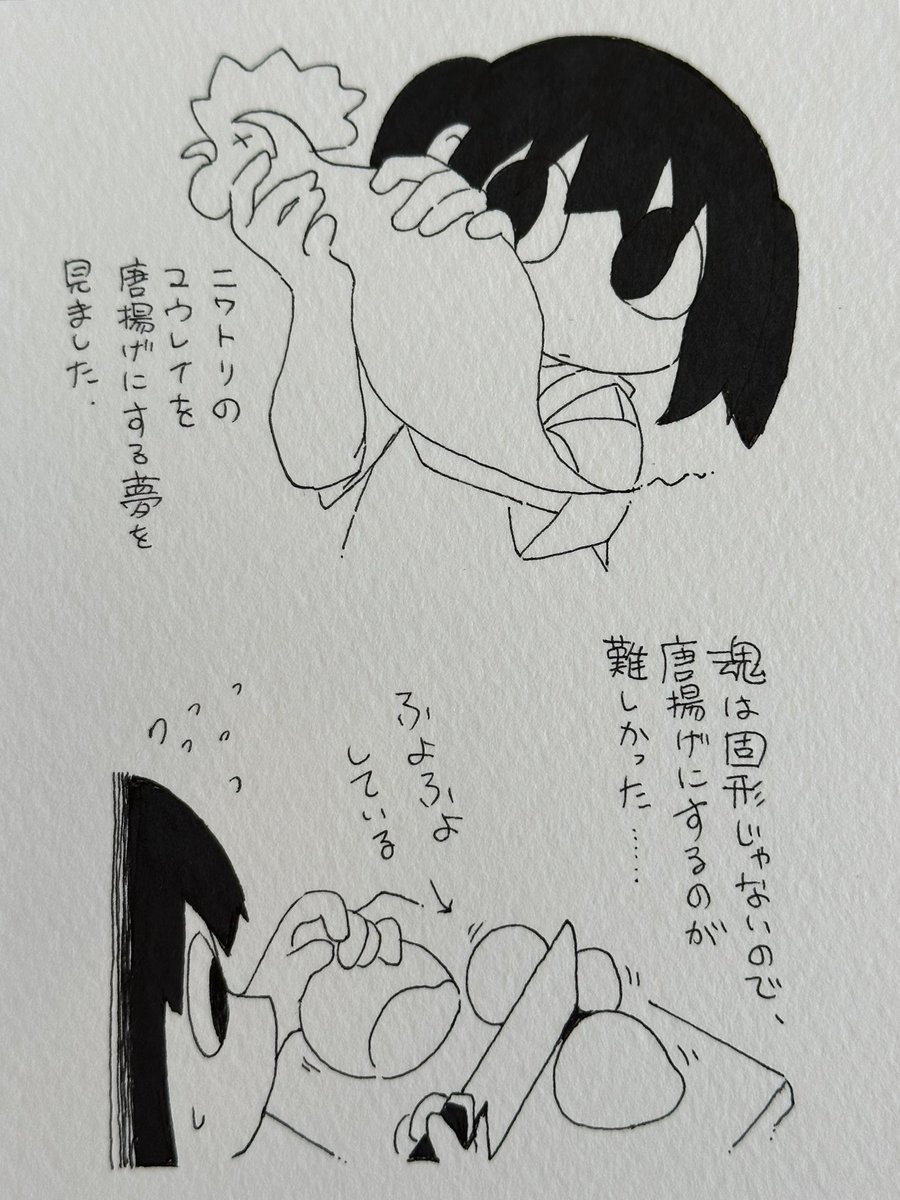 ニワトリの
ユウレイを
唐揚げにする夢を
見ました.
魂は固形じゃないので、
唐揚げにするのが
難しかった……
ふよふよ
している